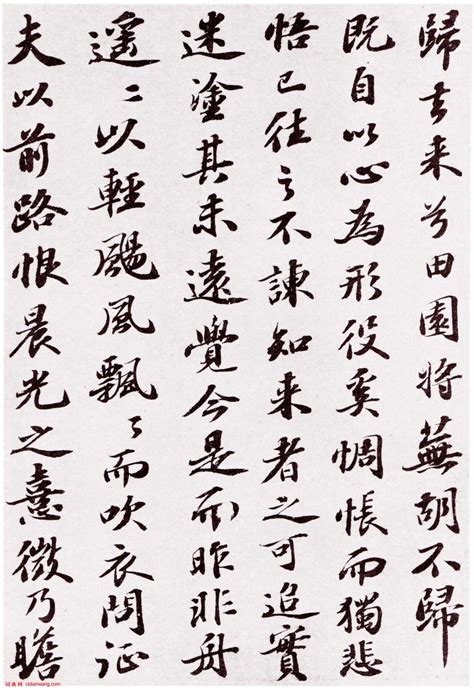 歸去来兮田園将蕪胡不歸
既自以心為形役奚惆悵而獨悲
悟已往之不諫知来者之可追實
迷塗其未遠覺今是而昨非舟
遥〻以輕颺風飄〻而吹衣問征
夫以前路恨晨光之熹微乃瞻
词典网 cidianwang.com